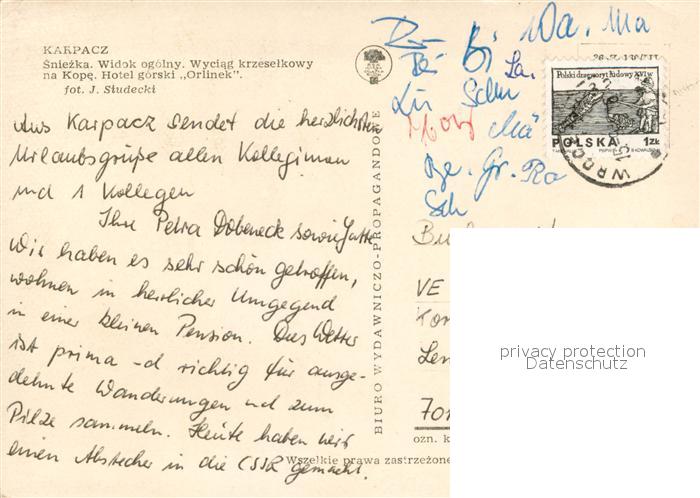 KARPACZ
Śnieżka. Widok ogólny. Wyciąg krzesełkowy
na Kopę. Hotel górski „Orlinek”.
fot. J. Studecki
Aus Karpacz sendet die herzlichsten
Urlaubsgrüße allen Kolleginnen
und 1 Kollegen
Ihre Petra Dobeneck sowie Gatte
Wir haben es sehr schön getroffen,
wohnen in herrlicher Umgegend
in einer kleinen Pension. Das Wetter
ist prima und richtig für ausge-
dehnte Wanderungen und zum
Pilze sammeln. Heute haben wir
einen Abstecher in die CSSR gemacht.
BIURO WYDAWNICZO-PROPAGANDOWE
Wa. Ma
Bi La.
Lu Schu
Mä
Gr. Ra
Sch
Polski drzeworyt ludowy XVI w.
POLSKA 1ZŁ
VE
Kon
Len
701
ozn. k
Wszelkie prawa zastrzeżone
privacy protection
Datenschutz